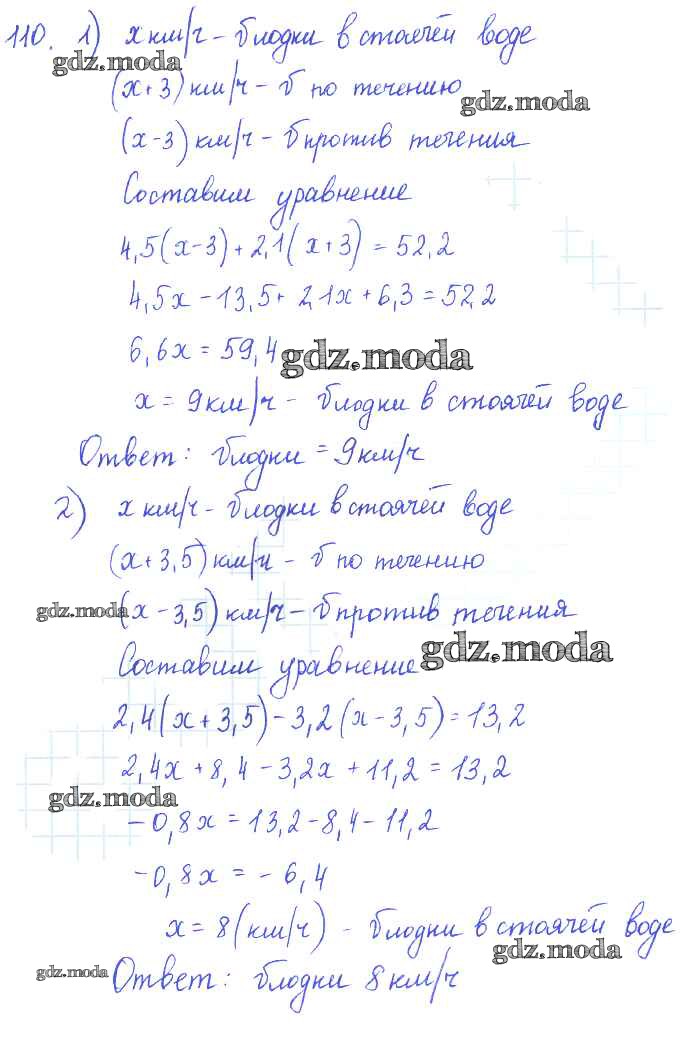 110. 1) x км/ч - υ лодки в стоячей воде
gdz.moda
(x+3) км/ч - υ по течению
gdz.moda
(x-3) км/ч - υ против течения
Составим уравнение
4,5(x-3)+2,1(x+3)=52,2
4,5x-13,5+2,1x+6,3=52,2
6,6x=59,4
gdz.moda
x=9км/ч - υ лодки в стоячей воде
Ответ: υ лодки = 9км/ч
2) x км/ч - υ лодки в стоячей воде
(x+3,5) км/ч - υ по течению
gdz.moda
(x-3,5) км/ч - υ против течения
Составим уравнение
gdz.moda
2,4(x+3,5)-3,2(x-3,5)=13,2
2,4x+8,4-3,2x+11,2=13,2
gdz.moda
-0,8x=13,2-8,4-11,2
-0,8x=-6,4
x=8(км/ч) - υ лодки в стоячей воде
gdz.moda
gdz.moda
Ответ: υ лодки 8км/ч